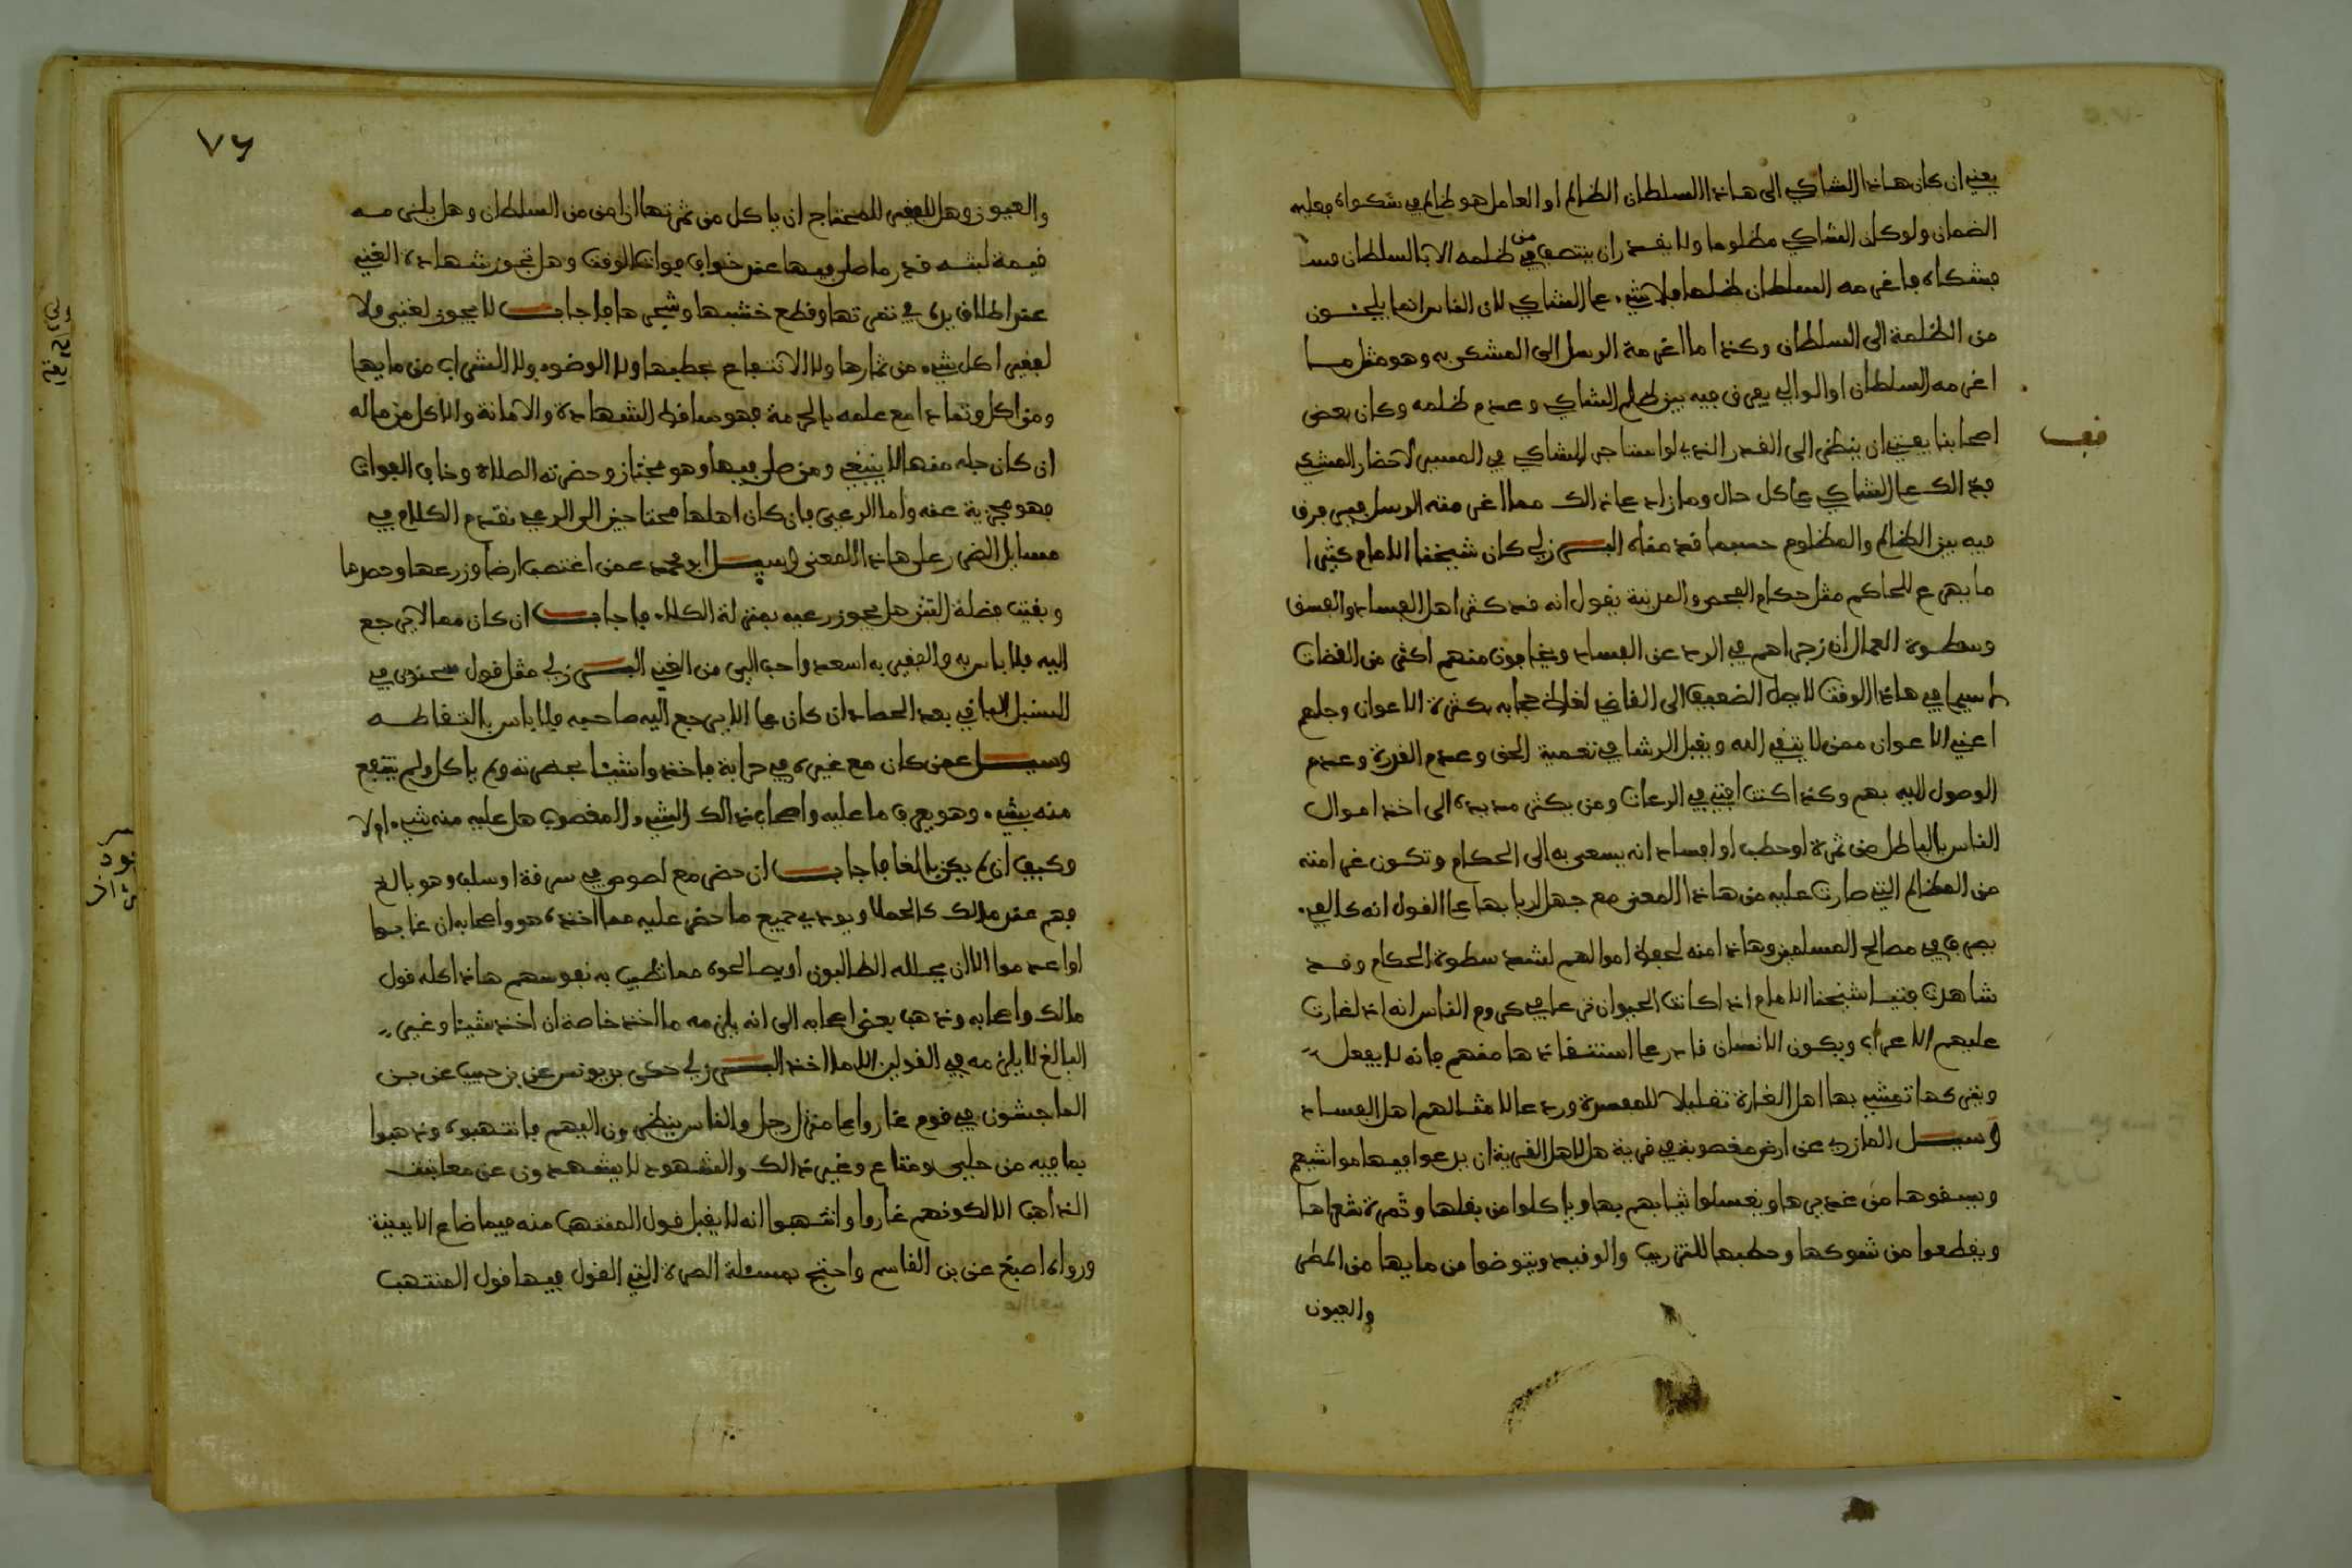 يعني ان كان هاذا الشاكي الى هاذا السلطان الظالم او العامل هو ظالم في شكواه فعليه
الضمان ولو كان الشاكي مظلوما ولا يقدر ان ينتصف من ظلمه الا بالسلطان
فشكاه فاغرمه السلطان ظلما فلا شيء على الشاكي لان الناس انما يلجئون
من الظلمة الى السلطان وكذا ما اغرمة الرسل الى المشكي به وهو مثل ما
اغرمه السلطان او الوالي يعرف فيه بين ظلم الشاكي وعدم ظلمه وكان بعض
اصحابنا يعني ان ينظر الى القدر الذي لو استاجر الشاكي في المسير لاحضار المشكي
فذالك على الشاكي على كل حال وما زاد على ذالك مما اغرمته الرسل فيفرق
فيه بين الظالم والمظلوم حسبما قدمناه البرزلي كان شيخنا الامام كثيرا
ما يفرع للحاكم مثل حكام الفحص والمدينة يقول انه قد كثر اهل الفساد والفسق
وسطوة العمال ان زجراهم في الرد عن الفساد ويخافون منهم اكثر من القضات
لا سيما في هاذا الوقت لا يصل الضعيف الى القاضي لغلظ حجابه بكثرة الاعوان وجلهم
اعني الاعوان ممن لا يتقي الله ويقبل الرشا في تعمية الحق وعدم القدرة وعدم
الوصول اليه بهم وكذا كنت افتي في الرعات ومن يكثر مد يده الى اخذ اموال
الناس بالباطل من ثمرة او حطب او افساد انه يسعى به الى الحكام وتكون غرامته
من المظالم التي صارت عليه من هاذا المعنى مع جهل اربابها على القول انه كالفيء
يصرف في مصالح المسلمين وهاذا منه لحفظ اموالهم لشدة سطوة الحكام وقد
شاهدت فتيا شيخنا الامام اذا كانت الحيوان ترعى في كروم الناس انه اذا غارت
عليهم الاعراب ويكون الانسان قادر على استنقاذها منهم فانه لا يفعل
ويتركها تمشي بها اهل الغارة تقليلا للمفسدة وردعا لامثالهم اهل الفساد
وسيل المازري عن ارض مغصوبة في قرية هل لاهل القرية ان يرعوا فيها مواشيهم
ويسقوها من غديرها ويغسلوا ثيابهم بها وياكلوا من بقلها وثمرة شعراها
ويقطعوا من شوكها وحطبها للتزريب والوقيد ويتوضوا من مايها من المطر
والعيون
قف
٧٦
والعيون وهل للفقير المحتاج ان ياكل من ثمرتها ان امن من السلطان وهل يلزمه
قيمة لبثه قدر ما صلى فيها عند خوف فوات الوقت وهل تجوز شهادة الغني
عند اطلاق يده في ثمرتها وقطع خشبها وشجرها فاجاب لا يجوز لغني ولا
لفقير اكل شيء من ثمارها ولا الانتفاع بحطبها ولا الوضوء ولا الشراب من مايها
ومن اكل وتمادا مع علمه بالحرمة فهو ساقط الشهادة والامانة والاكل من ماله
ان كان جله منها لا ينبغي ومن صلى فيها وهو مجتاز وحضرته الصلاة وخاف الفوات
فهو مجزية عنه واما الرعي فان كان اهلها محتاجين الى الرعي تقدم الكلام في
مسايل الضرر على هاذا المعنى وسيل ابو محمد عمن اغتصب ارضا وزرعها وحصدها
وبقيت فضلة التبن هل يجوز رعيه بمنزلة الكلاء فاجاب ان كان مما لا يرجع
اليه فلا باس به والفقير به اسعد واحب الي من الغني البرزلي مثل قول سحنون في
السنبل الباقي بعد الحصاد ان كان مما لا يرجع اليه صاحبه فلا باس بالتقاطه
وسيل عمن كان مع غيره في حرابة فاخذوا شيئا بحضرته ولم ياكل ولم ينتفع
منه بشيء وهو يعرف ما عليه واصحاب ذالك الشيء المغصوب هل عليه منه شيء ام لا
وكيف ان لم يكن بالغا فاجاب ان حضر مع لصوص في سرقة او سلب وهو بالغ
فهم عند مالك كالحملا ويودي جميع ما حضر عليه مما اخذه هو واصحابه ان غابوا
او اعدموا الا ان يحلله الطالبون او يصالحوه مما تطيب به نفوسهم هاذا كله قول
مالك واصحابه وذهب بعض اصحابه الى انه يلزمه ما اخذ خاصة ان اخذ شيئا وغير
البالغ لا يلزمه في القولين الا ما اخذ البرزلي حكى بن يونس عن بن حبيب عن بن
الماجشون في قوم غاروا على منزل رجل والناس ينظرون اليهم فانتهبوه وذهبوا
بما فيه من حلي ومتاع وغير ذالك والشهود لا يشهدون عن معاينة
الذاهب الا لكونهم غاروا وانتهبوا انه لا يقبل قول المنتهب منه فيما ضاع الا ببينة
ورواه اصبغ عن بن القاسم واحتج بمسئلة الصرة التي القول فيها قول المنتهب